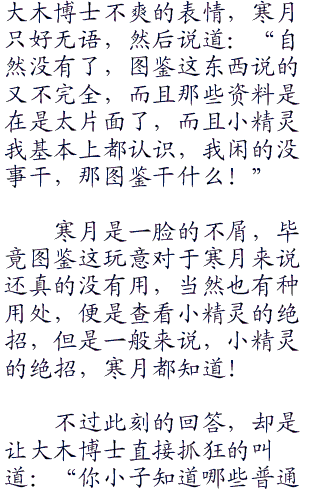 大木博士不爽的表情，寒月
只好无语，然后说道：“自
然没有了，图鉴这东西说的
又不完全，而且那些资料是
在是太片面了，而且小精灵
我基本上都认识，我闲的没
事干，那图鉴干什么！”
寒月是一脸的不屑，毕
竟图鉴这玩意对于寒月来说
还真的没有用，当然也有种
用处，便是查看小精灵的绝
招，但是一般来说，小精灵
的绝招，寒月都知道！
不过此刻的回答，却是
让大木博士直接抓狂的叫
道：“你小子知道哪些普通